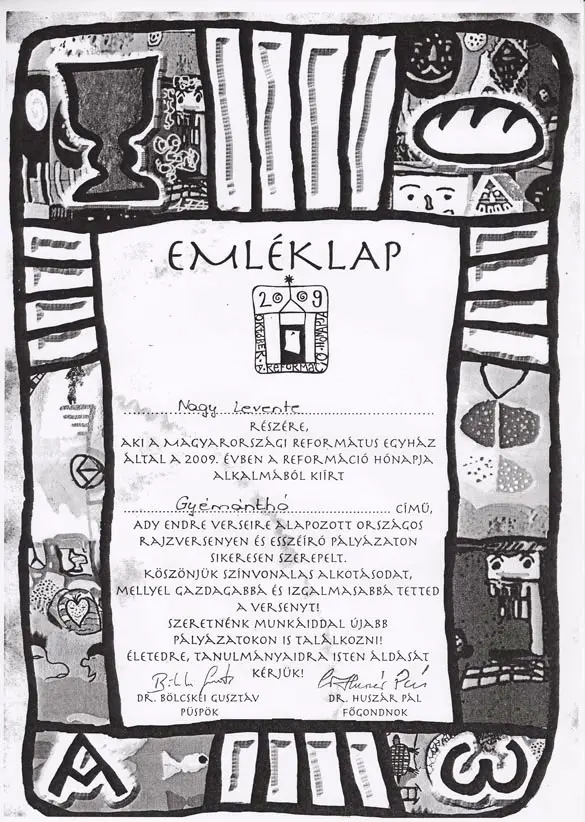 EMLÉKLAP
2009
OKTÓBER A REFORMÁCIÓ HÓNAPJA
Nagy Levente
RÉSZÉRE,
AKI A MAGYARORSZÁGI REFORMÁTUS EGYHÁZ
ÁLTAL A 2009. ÉVBEN A REFORMÁCIÓ HÓNAPJA
ALKALMÁBÓL KIÍRT
Gyémánthó CÍMŰ,
ADY ENDRE VERSEIRE ALAPOZOTT ORSZÁGOS
RAJZVERSENYEN ÉS ESSZÉÍRÓ PÁLYÁZATON
SIKERESEN SZEREPELT.
KÖSZÖNJÜK SZÍNVONALAS ALKOTÁSODAT,
MELLYEL GAZDAGABBÁ ÉS IZGALMASABBÁ TETTED
A VERSENYT!
SZERETNÉNK MUNKÁIDDAL ÚJABB
PÁLYÁZATOKON IS TALÁLKOZNI!
ÉLETEDRE, TANULMÁNYAIDRA ISTEN ÁLDÁSÁT
KÉRJÜK!
DR. BÖLCSKEI GUSZTÁV DR. HUSZÁR PÁL
PÜSPÖK FŐGONDNOK
A ω